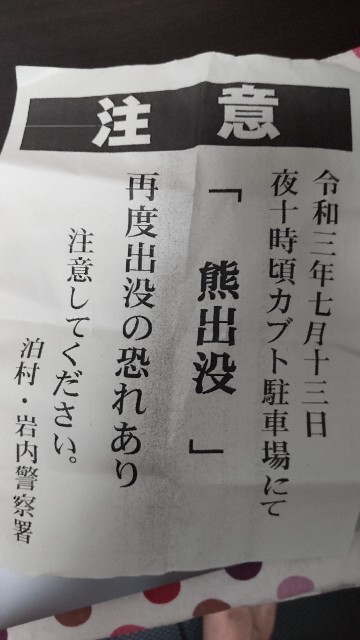 注意
令和三年七月十三日
夜十時頃カブト駐車場にて
「熊出没」
再度出没の恐れあり
注意してください。
泊村・岩内警察署